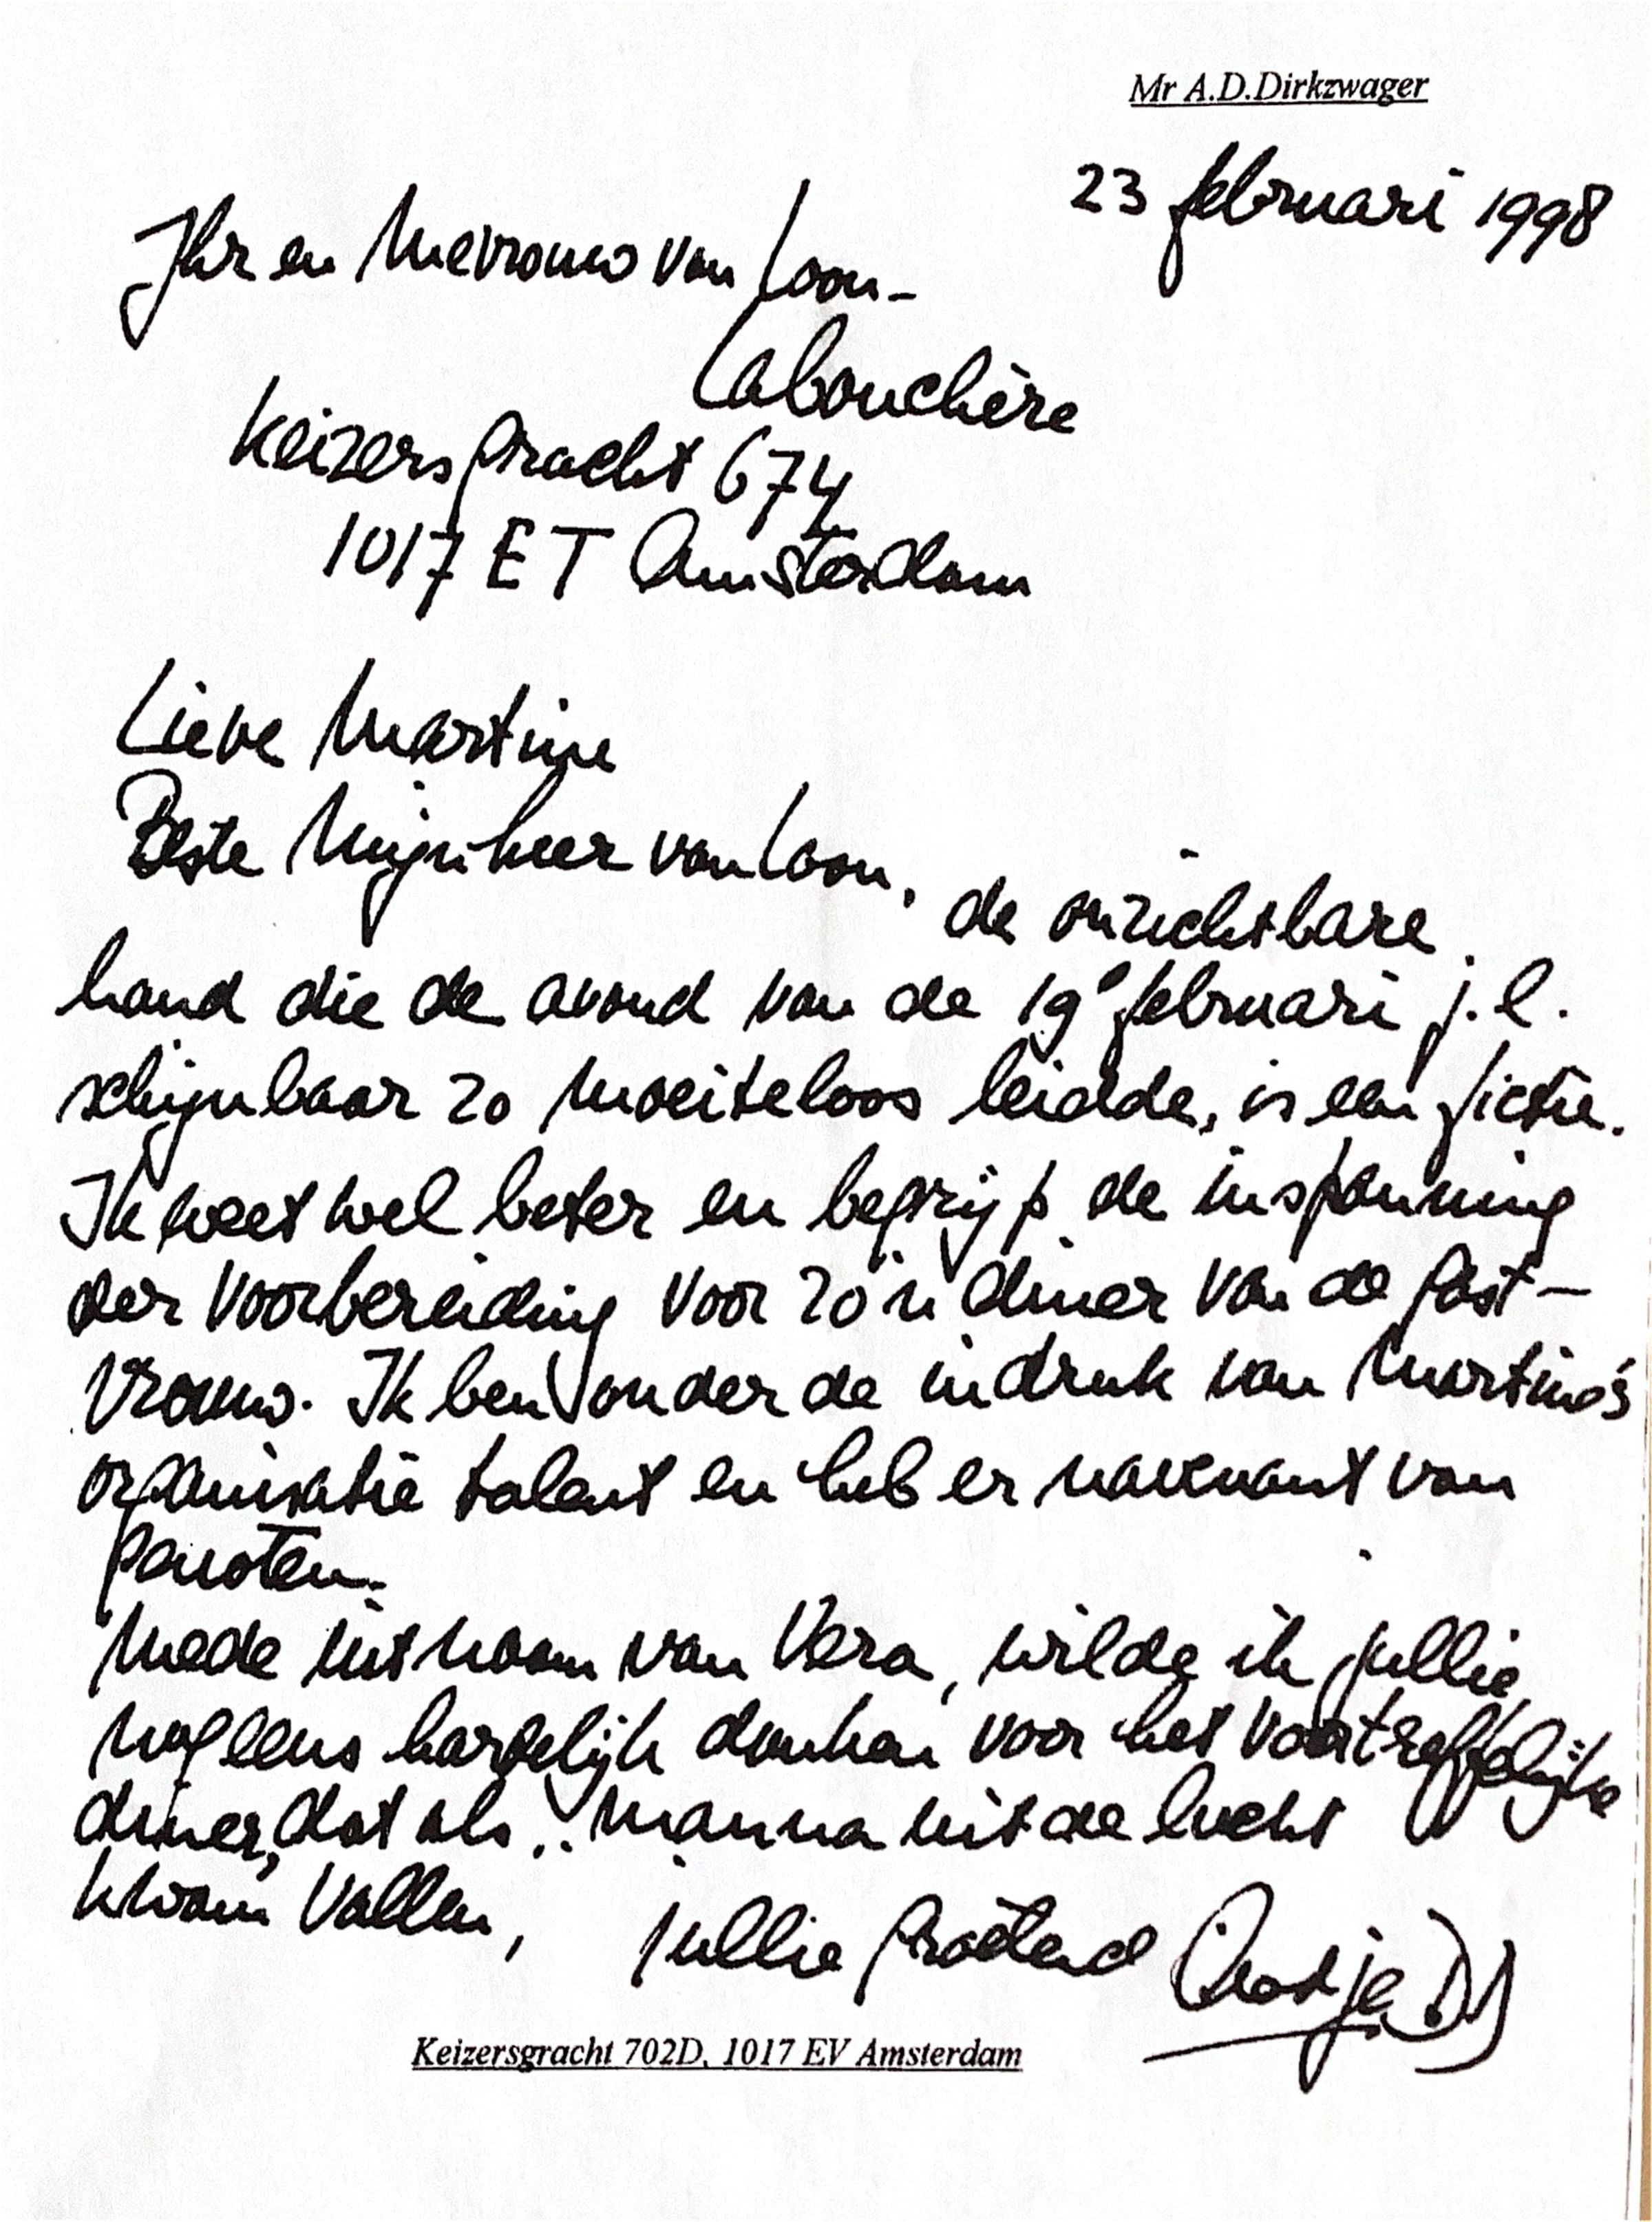 Mr A.D.Dirkzwager
23 februari 1998
Jhr en Mevrouw van Loon-
Labouchère
Keizersgracht 674
1017 ET Amsterdam
Lieve Martine
Beste Mijnheer van Loon,
de onzichtbare
hand die de avond van de 19e februari j.l.
schijnbaar zo moeiteloos leidde, is een fictie.
Ik weet wel beter en begrijp de inspanning
der voorbereiding voor zo'n diner van de gast-
vrouw. Ik ben onder de indruk van Martine's
organisatie talent en heb er navenant van
genoten.
Mede uit naam van Vera, wilde ik jullie
nog eens hartelijk danken voor het voortreffelijke
diner, dat als .. manna uit de lucht
kwam vallen,
jullie groetend
Keizersgracht 702D, 1017 EV Amsterdam